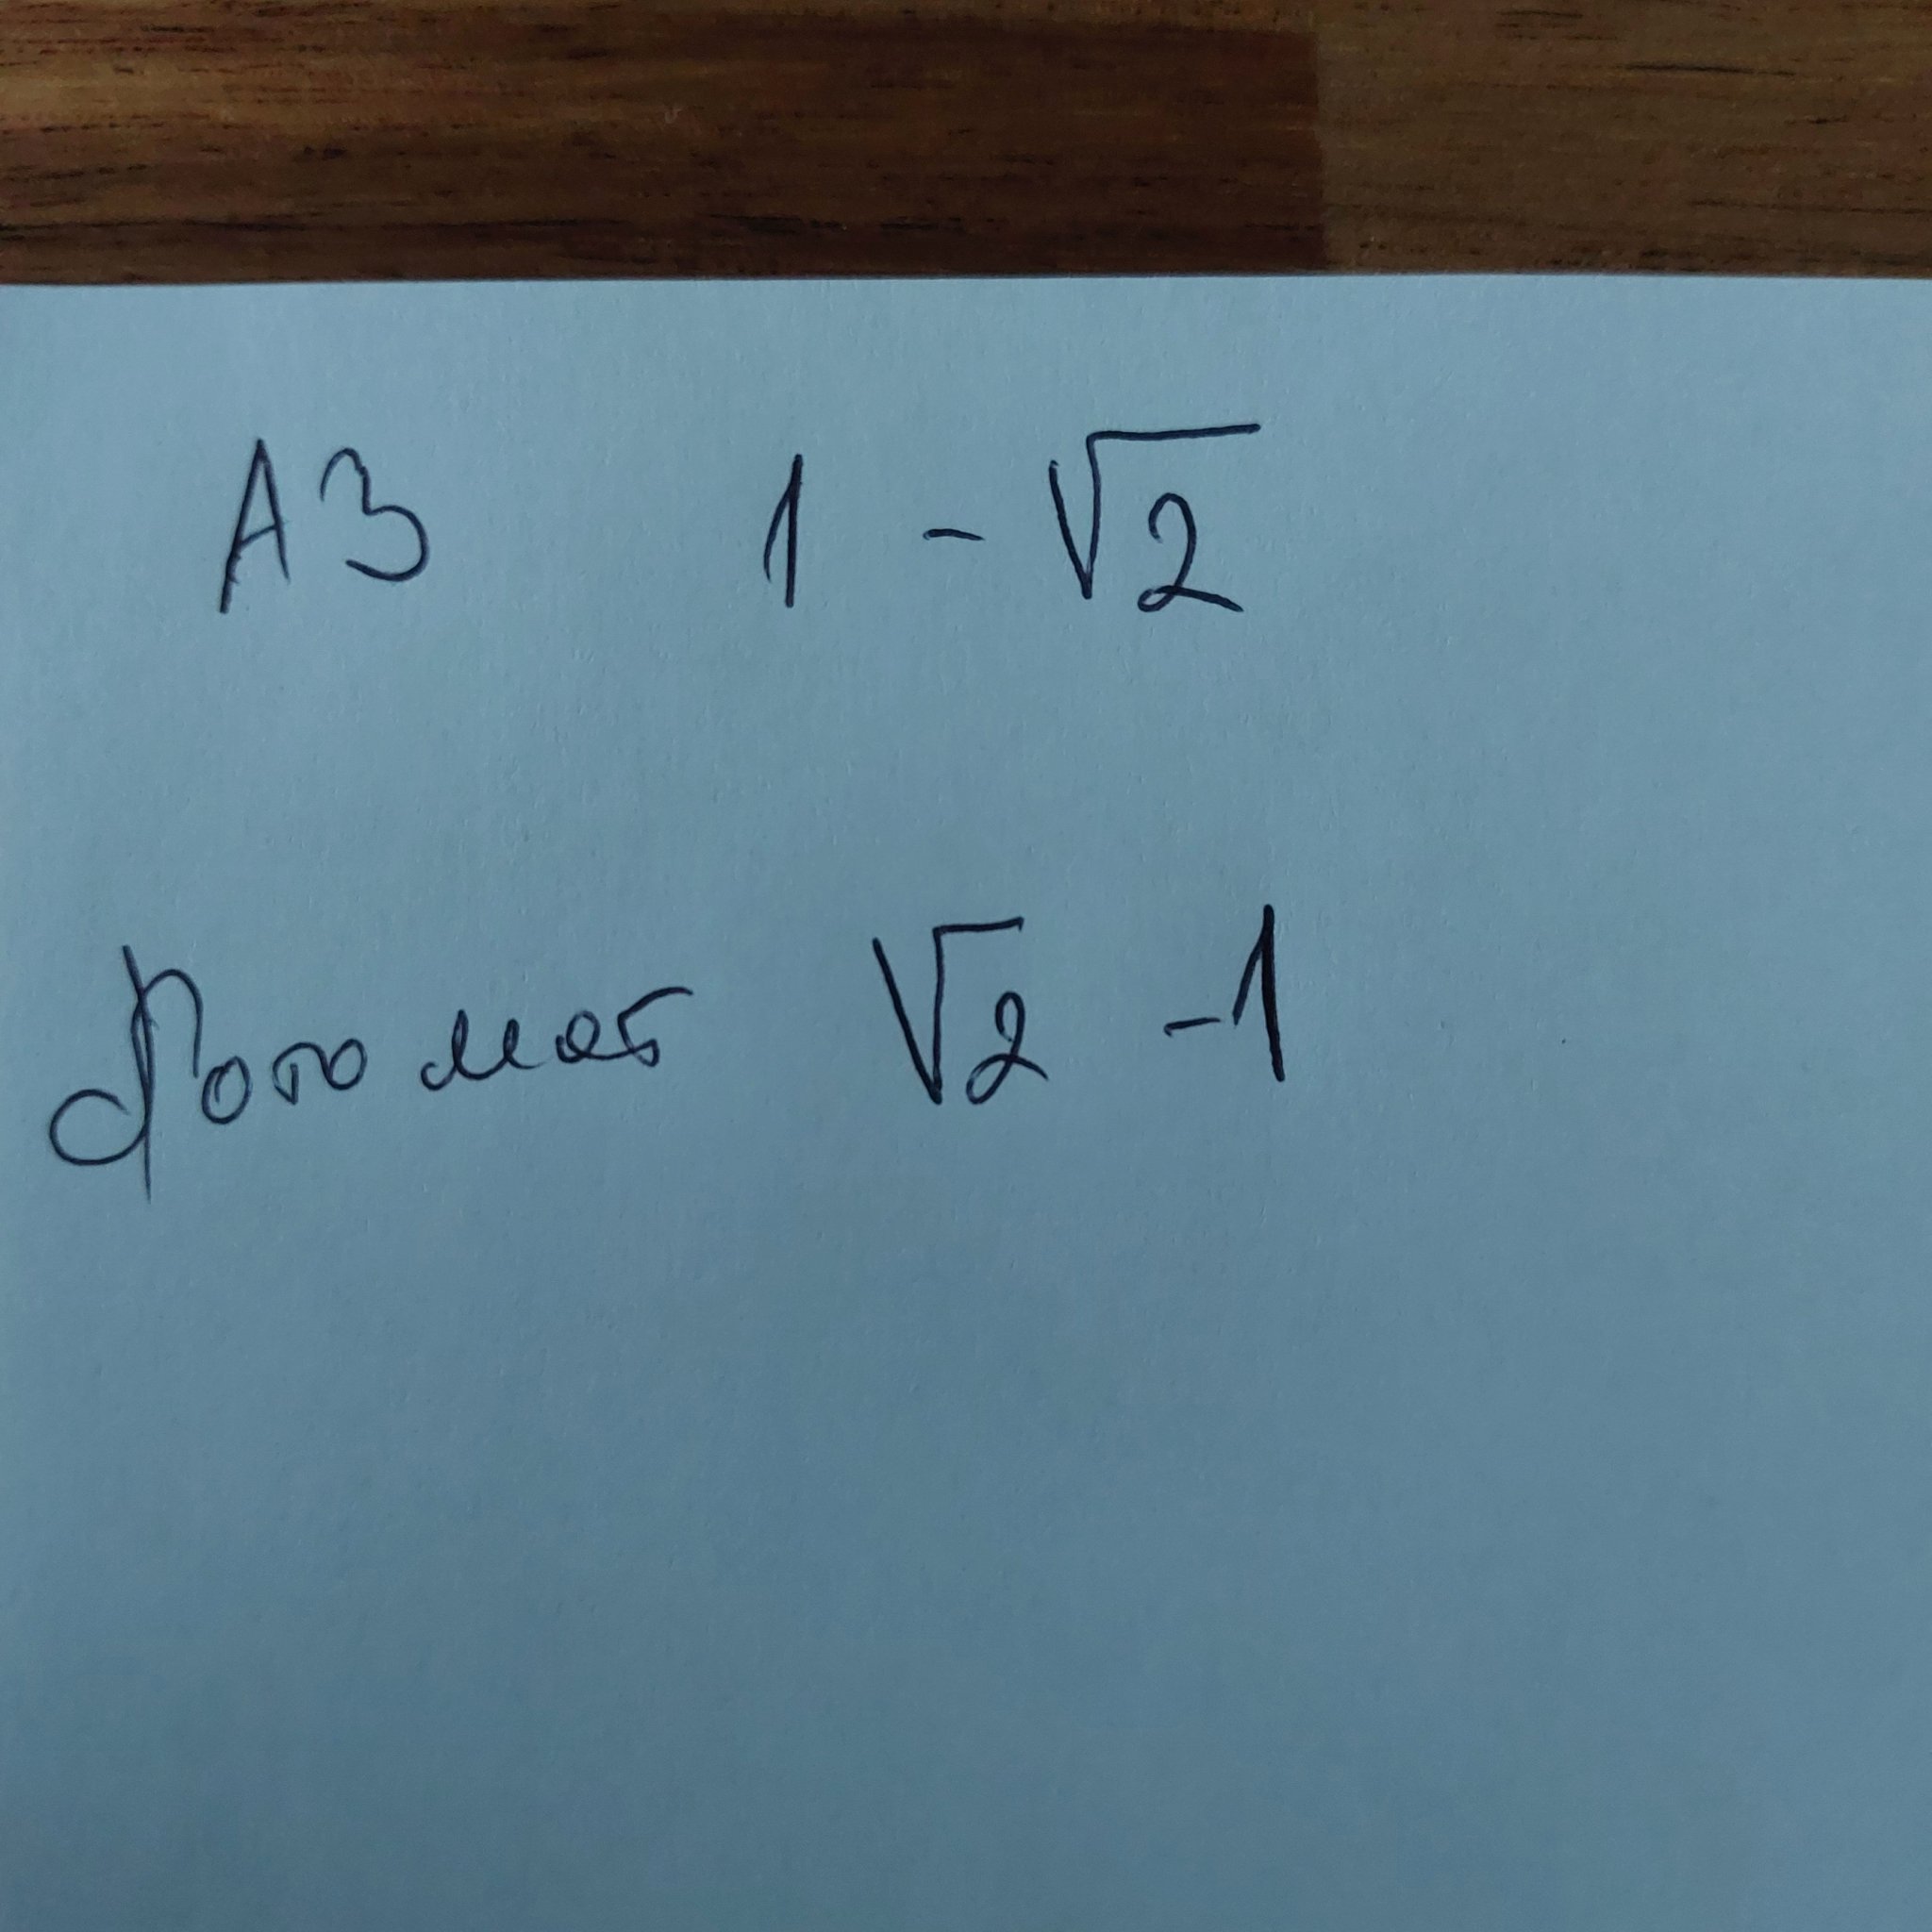 А3 1 - √2
Фотомат √2 - 1